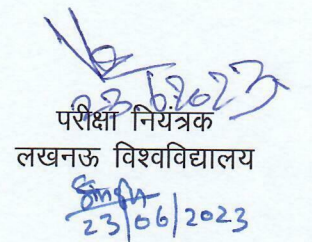 23.6.2023
परीक्षा नियंत्रक
लखनऊ विश्वविद्यालय
23/06/2023